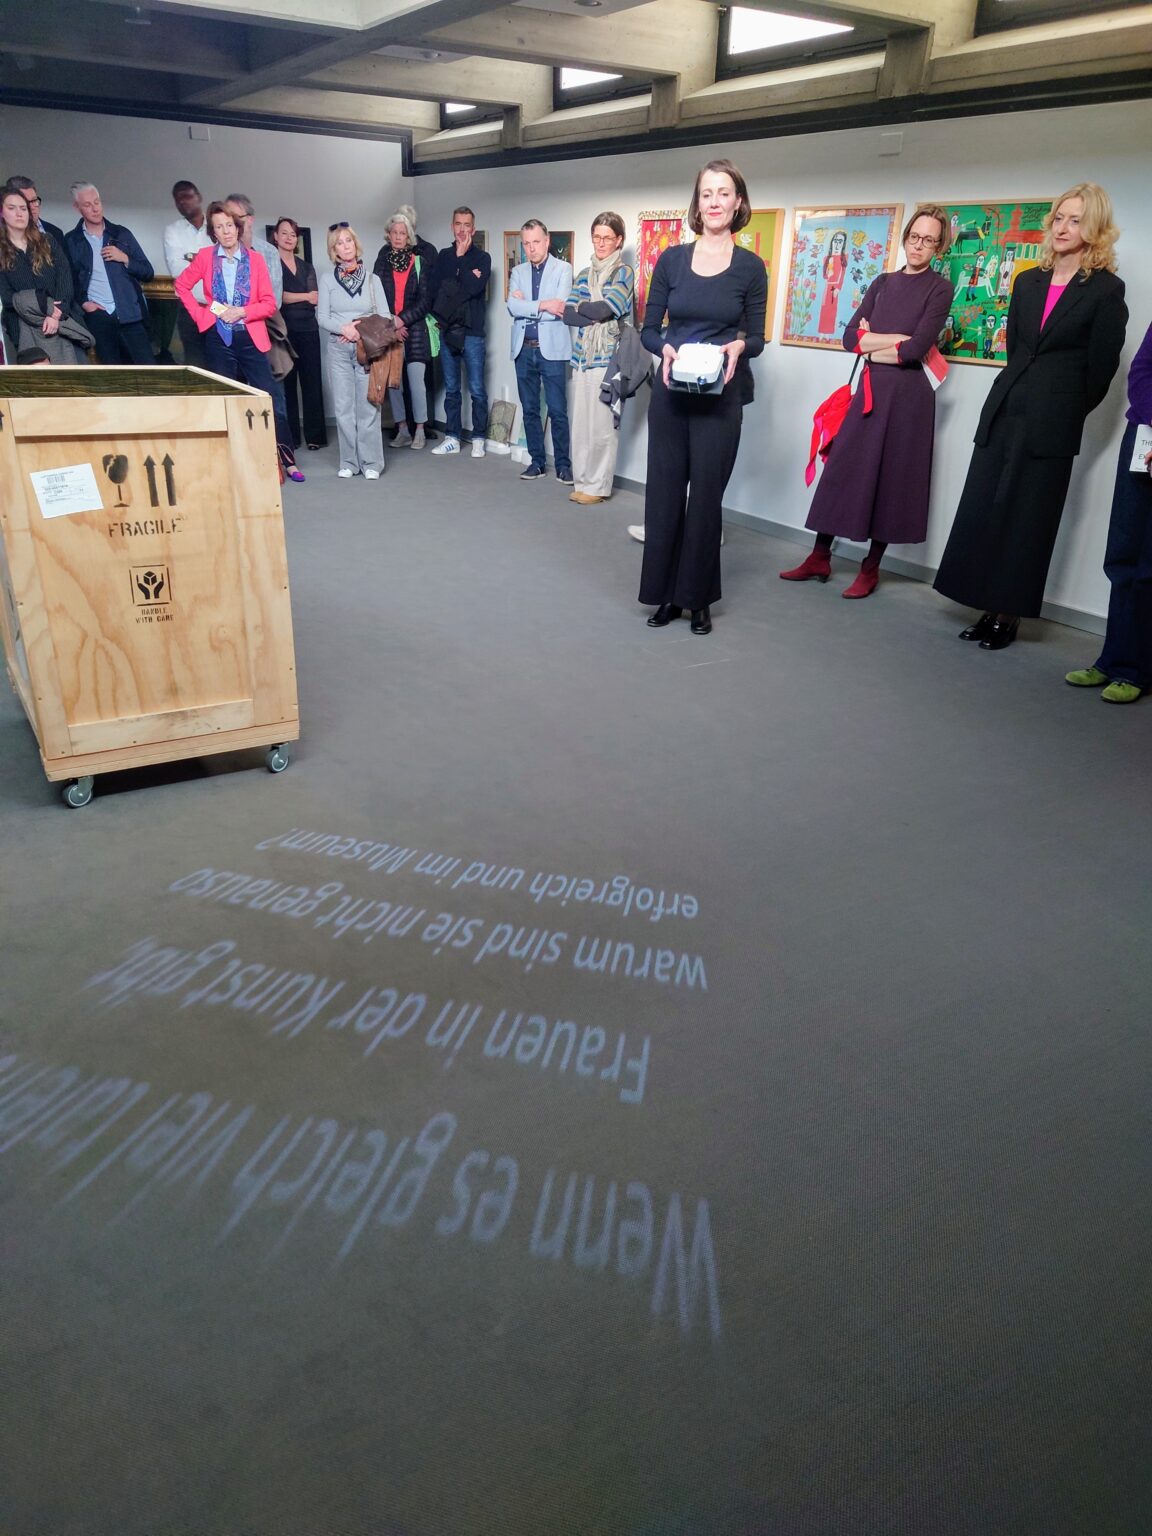 FRAGILE
HANDLE
WITH CARE
Wenn es gleich viel
Frauen in der Kunst gibt
warum sind sie nicht genauso
erfolgreich und im Museum?
THE
EX